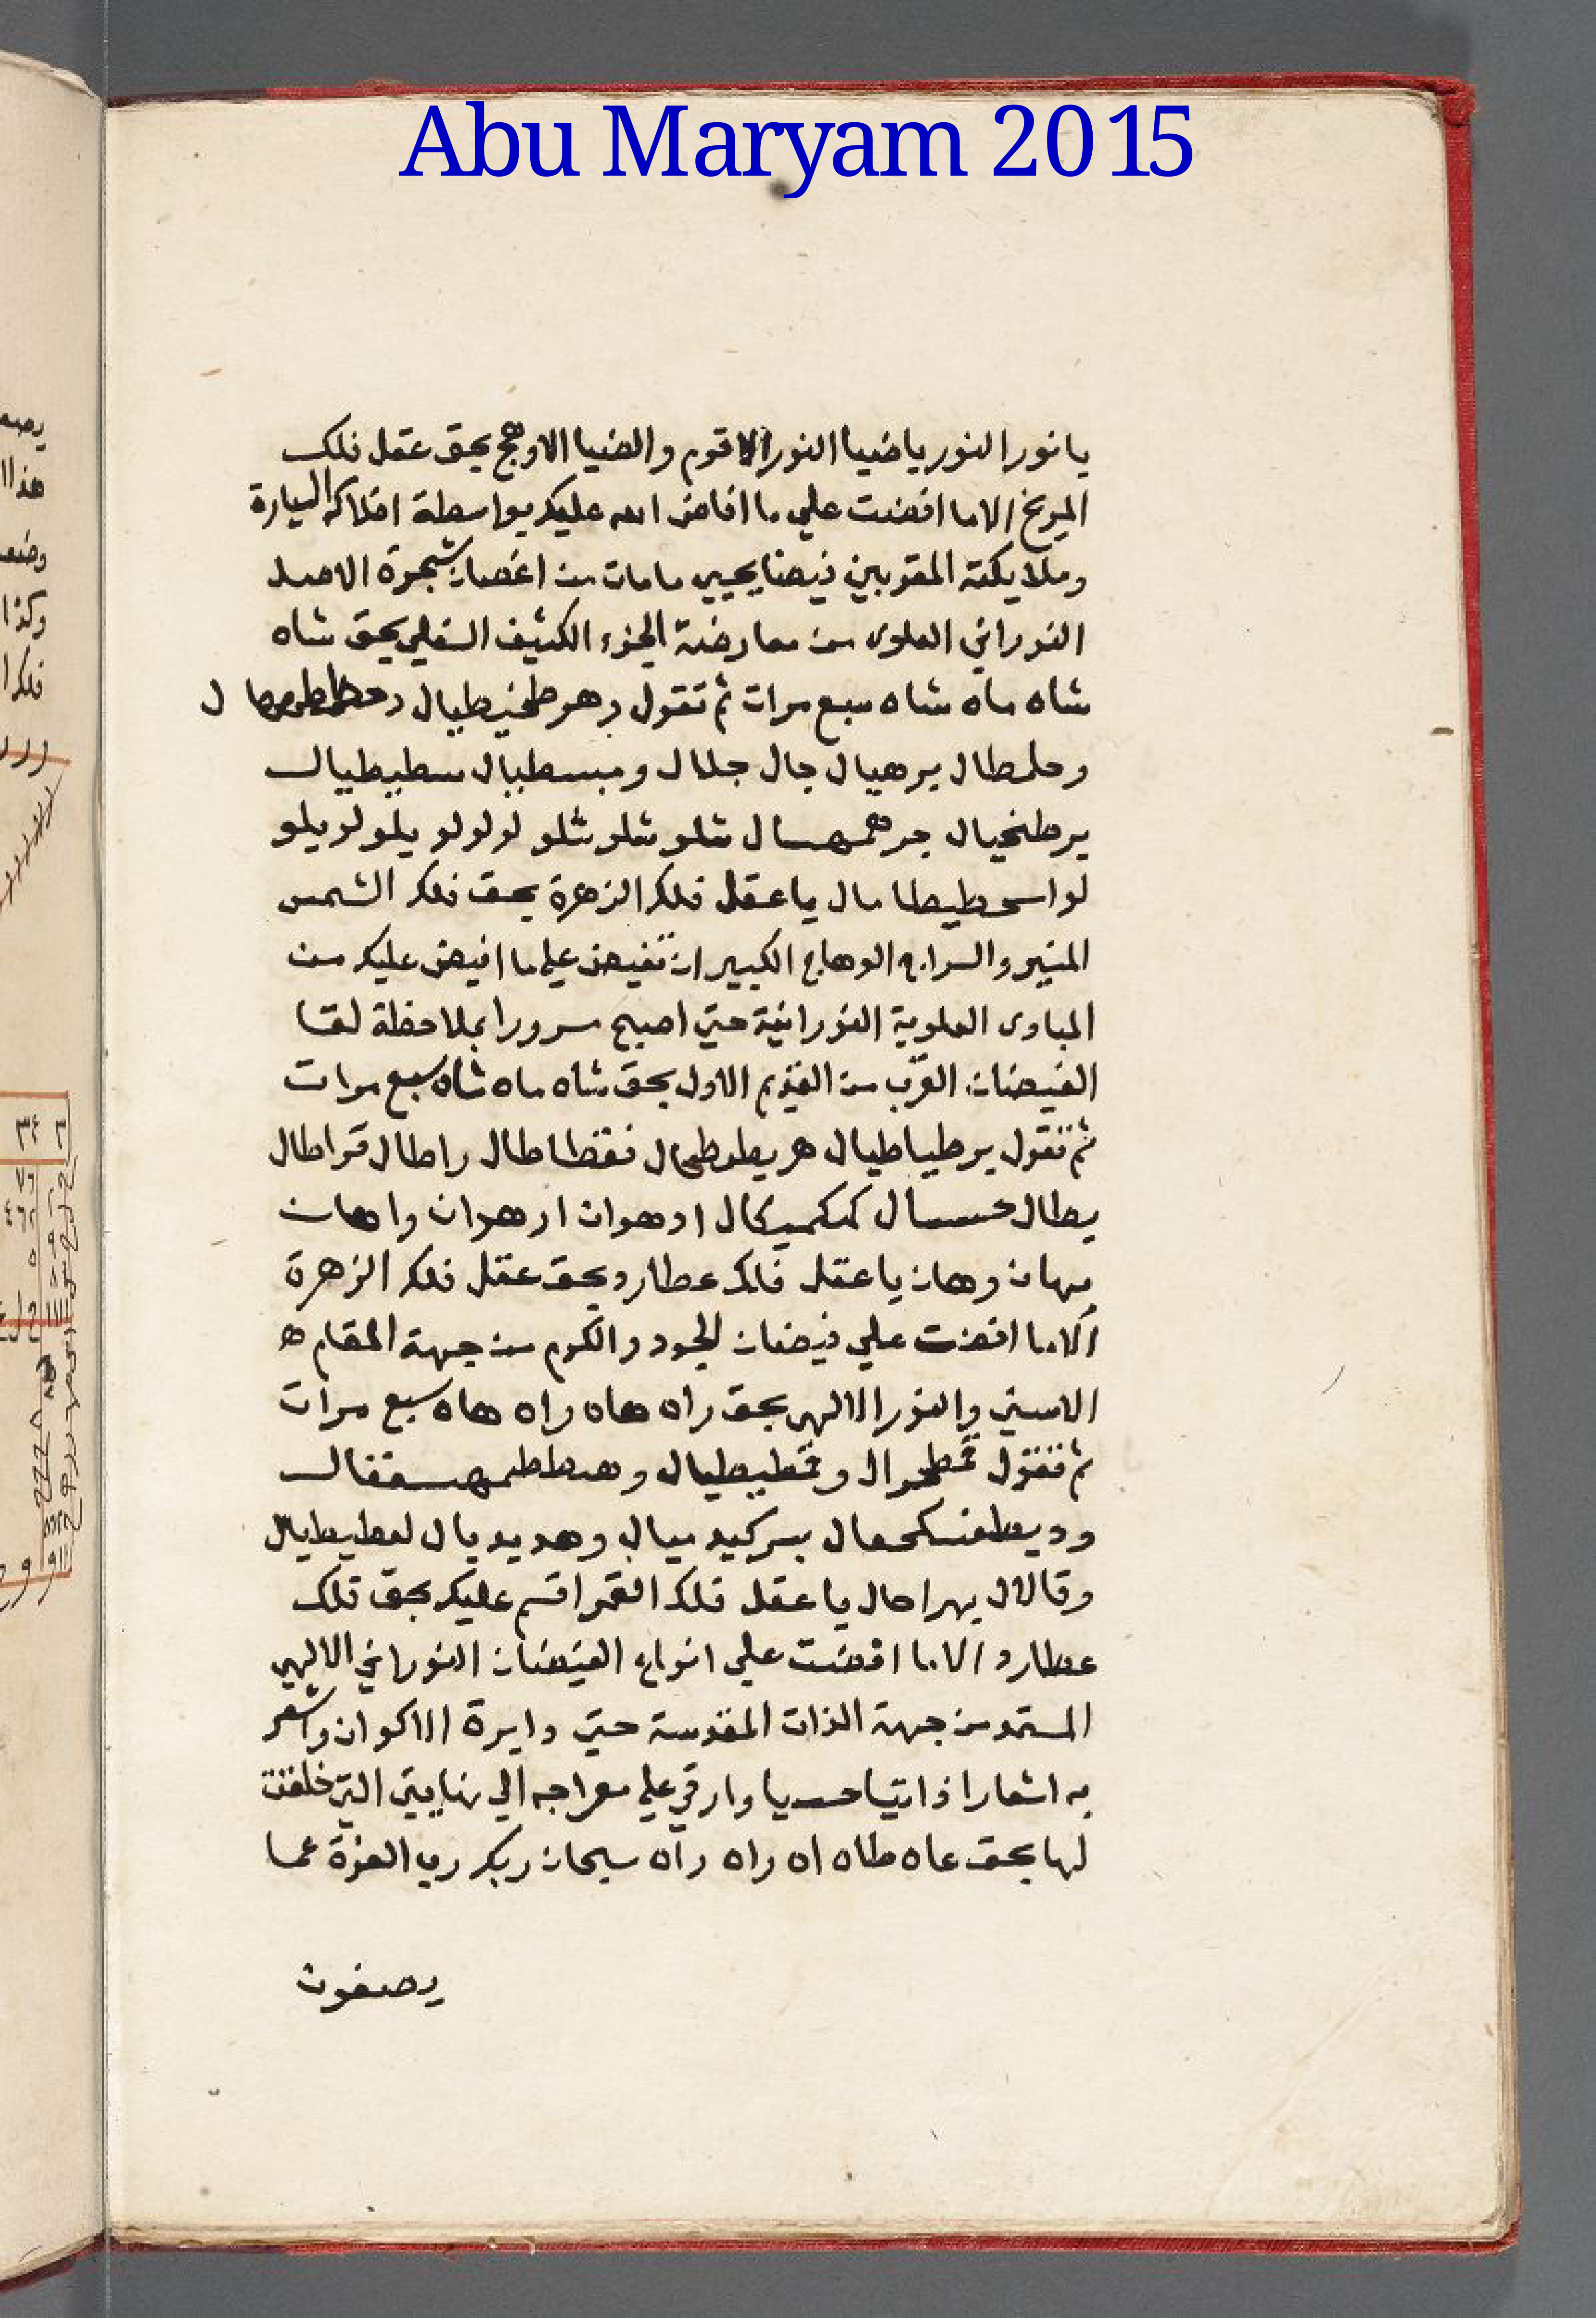 Abu Maryam 2015
يا نور النور يا ضيا النور الاقوم والضيا الاوهج بحق عقل فلك
المريخ الاما افضت علي ما افاض الله عليك بواسطة افلاكه السيارة
وملايكته المقربين فيضا يحيي ما مات من اغصان شجرة الاصل
النوراني العلوي من معارضة الجزء الكثيف السفلي بحق شاه
شاه ماه شاه سبع مرات ثم تقول
وحلمطال برهيال جال جلال
برطخيال شلو شلو شلو لولولو يلولو يلو
يا عقل فلك الزهرة بحق فلك الشمس
المنير والسراج الوهاج الكبير ان تفيض علي ما افيض عليك من
المبادى العلوية النورانية حتي اصبح مسرورا بملاحظة لقا
الفيضان القرب من القيوم الاول بحق شاه ماه شاه سبع مرات
ثم تقول برطياطيال راطال قراطال
يطال ادهوان ارهوان واهان
مهان وهان يا عقل فلك عطارد بحق عقل فلك الزهرة
الاما افضت علي فيضان الجود والكرم من جهة المقام ه
الاسني والنور الالهي بحق راه هاه راه هاه سبع مرات
ثم تقول
وهديد يال لعطيطيال
وقالال بهراحال يا عقل فلك القمر اقسم عليك بحق فلك
عطارد الاما افضت علي انواع الفيضان النوراني الالهي
المستمد من جهة الذات المقدسة حتي دايرة الاكوان واشعر
به اشعارا ذاتيا حسيا وارقي علي معراجه الي نهايتي التي خلقت
لها بحق عاه طاه اه راه راه سبحان ربك رب العزة عما
يصفون